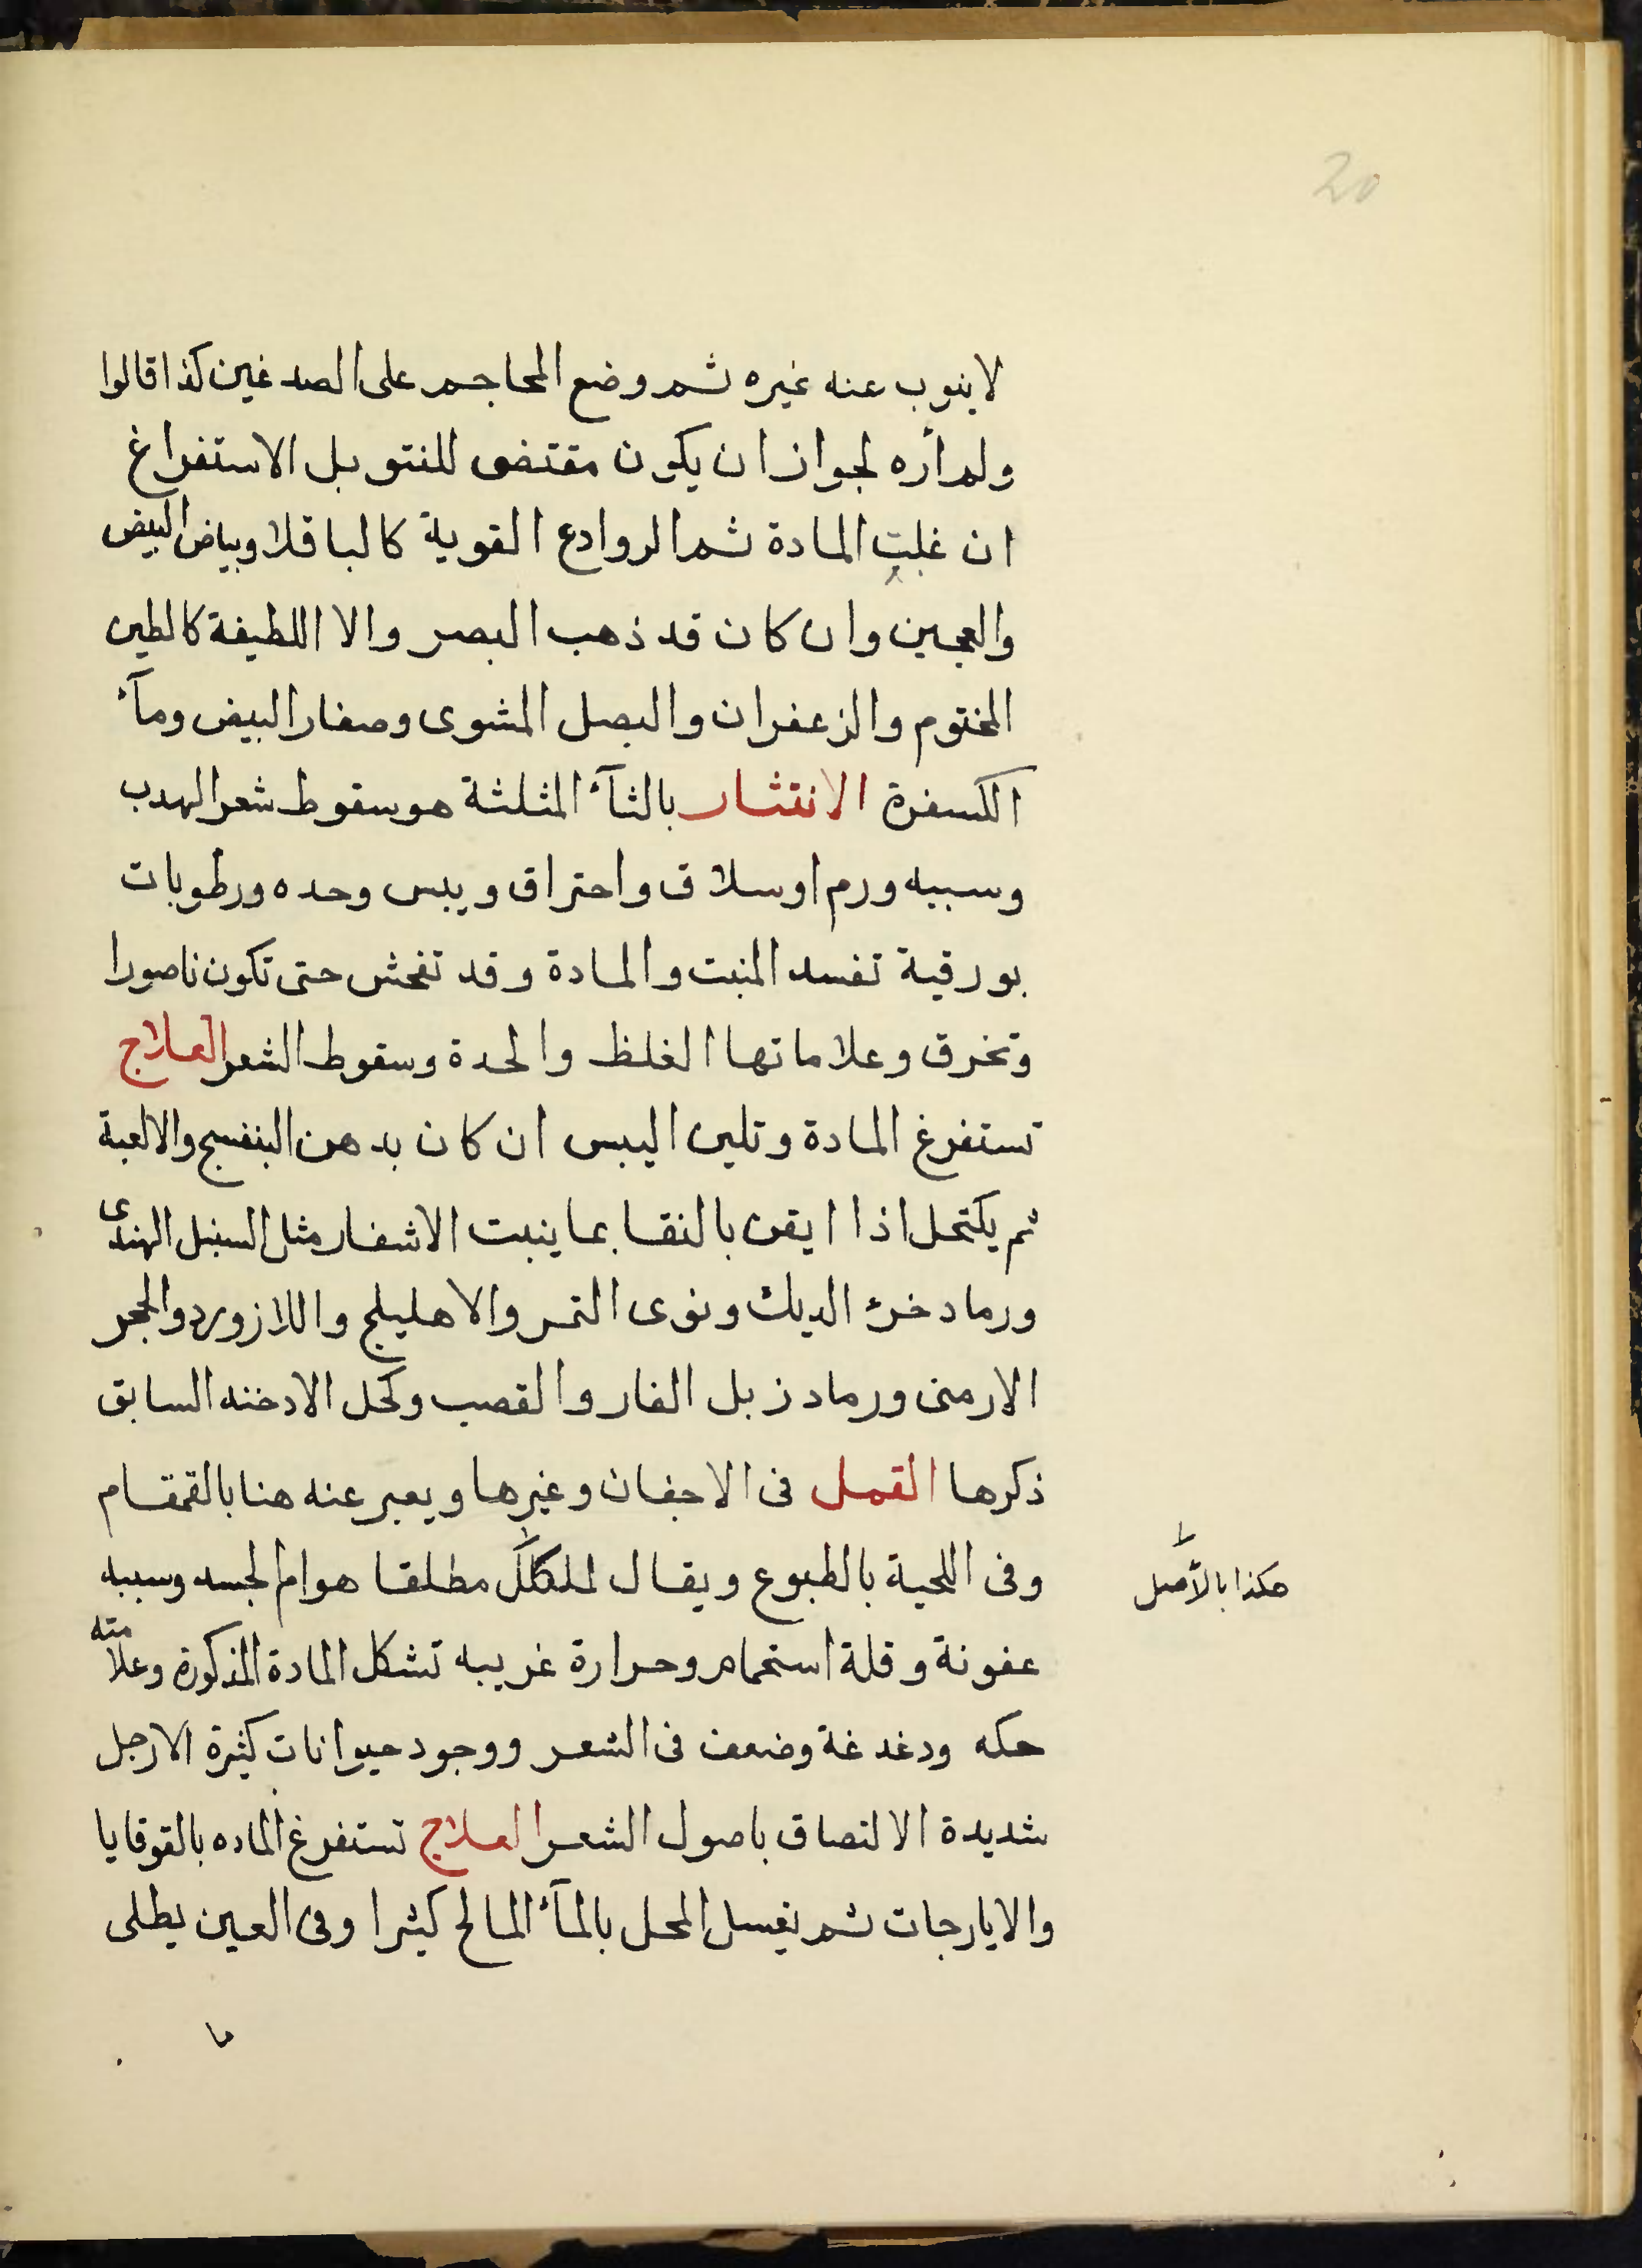 20
لا ينوب عنه غيره ثم وضع المحاجم على الصدغين كذا قالوا
ولم أره لجواز ان يكون مقتضى للنتو بل الاستفراغ
ان غلبت المادة ثم الروادع القوية كالباقلا وبياض البيض
والعجين وان كان قد ذهب البصر والا اللطيفة كالطين
المختوم والزعفران والبصل المشوى وصفار البيض ومآء
الكسفرة الانتثار بالثآء المثلثة هو سقوط شعر الهدب
وسببه ورم او سلاق واحتراق ويبس وحده ورطوبات
بورقية تفسد المنبت والمادة وقد تفحش حتى تكون ناصورا
وتخرق وعلاماتها الغلظ والحدة وسقوط الشعر العلاج
تستفرغ المادة وتلين اليبس ان كان بدهن البنفسج والالعبة
ثم يكتحل اذا ايقن بالنقا بما ينبت الاشفار مثل السنبل الهندى
ورماد خرء الديك ونوى التمر والاهليلج واللازورد والحجر
الارمنى ورماد زبل الفار والقصب وكحل الادخنه السابق
ذكرها القمل فى الاجفان وغيرها ويعبر عنه هنا بالقمقام
وفى اللحية بالطبوع ويقال للكلّ مطلقا هوام الجسد وسببه
هكذا بالأصل
عفونة وقلة استحمام وحرارة غريبه تشكل المادة المذكورة وعلامته
حكه ودغدغة وضعف فى الشعر ووجود حيوانات كثيرة الارجل
شديدة الالتصاق باصول الشعر العلاج تستفرغ الماده بالقوقايا
والايارجات ثم يغسل المحل بالمآء المالح كثيرا وفى العين يطلى